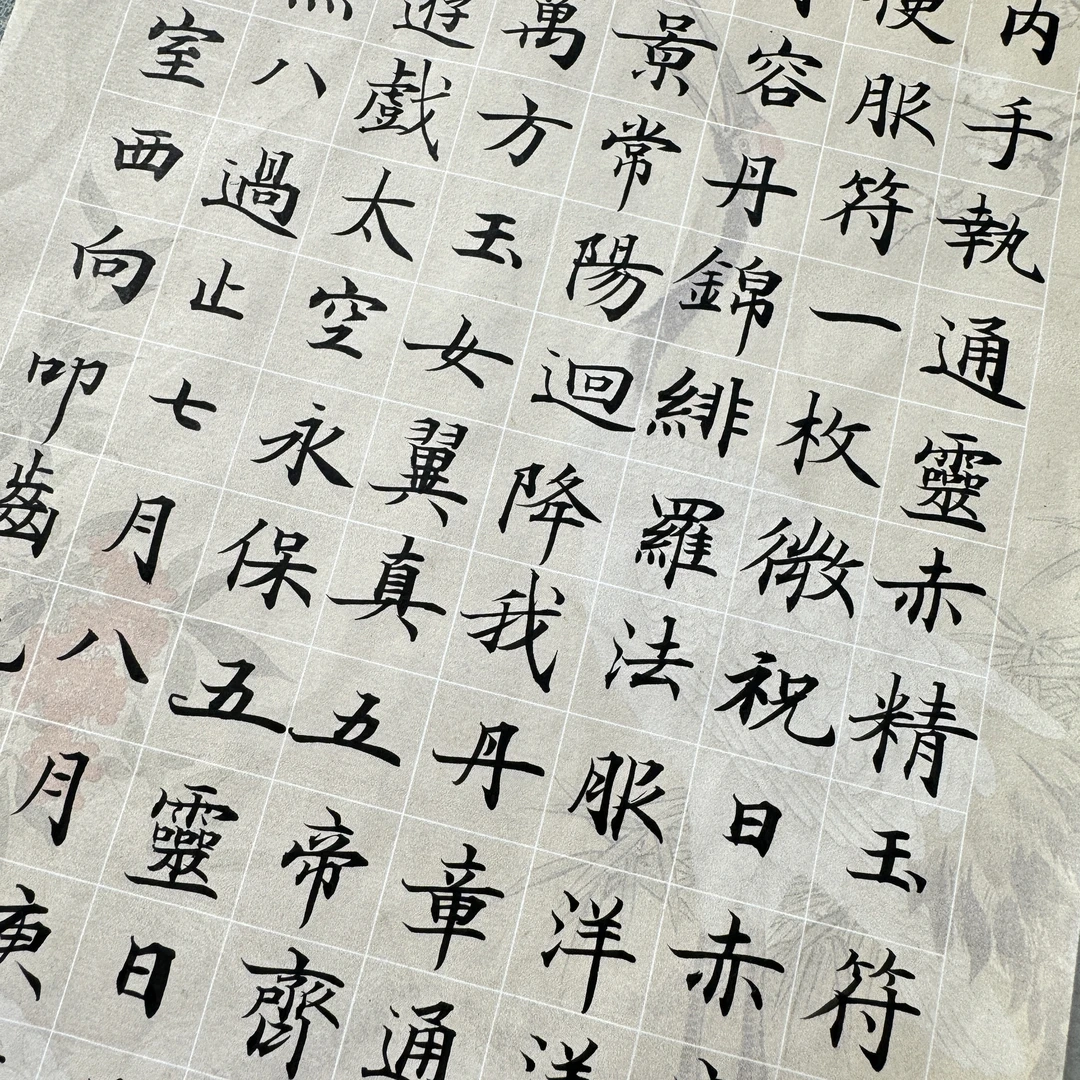 内手執通靈赤精玉符
便服符一枚微祝日赤
容丹錦緋羅法服洋洋
景常陽迴降我丹章通
萬方玉女翼真五帝齊
遊戲太空永保五靈日
八過止七月八月庚
室西向叩齒